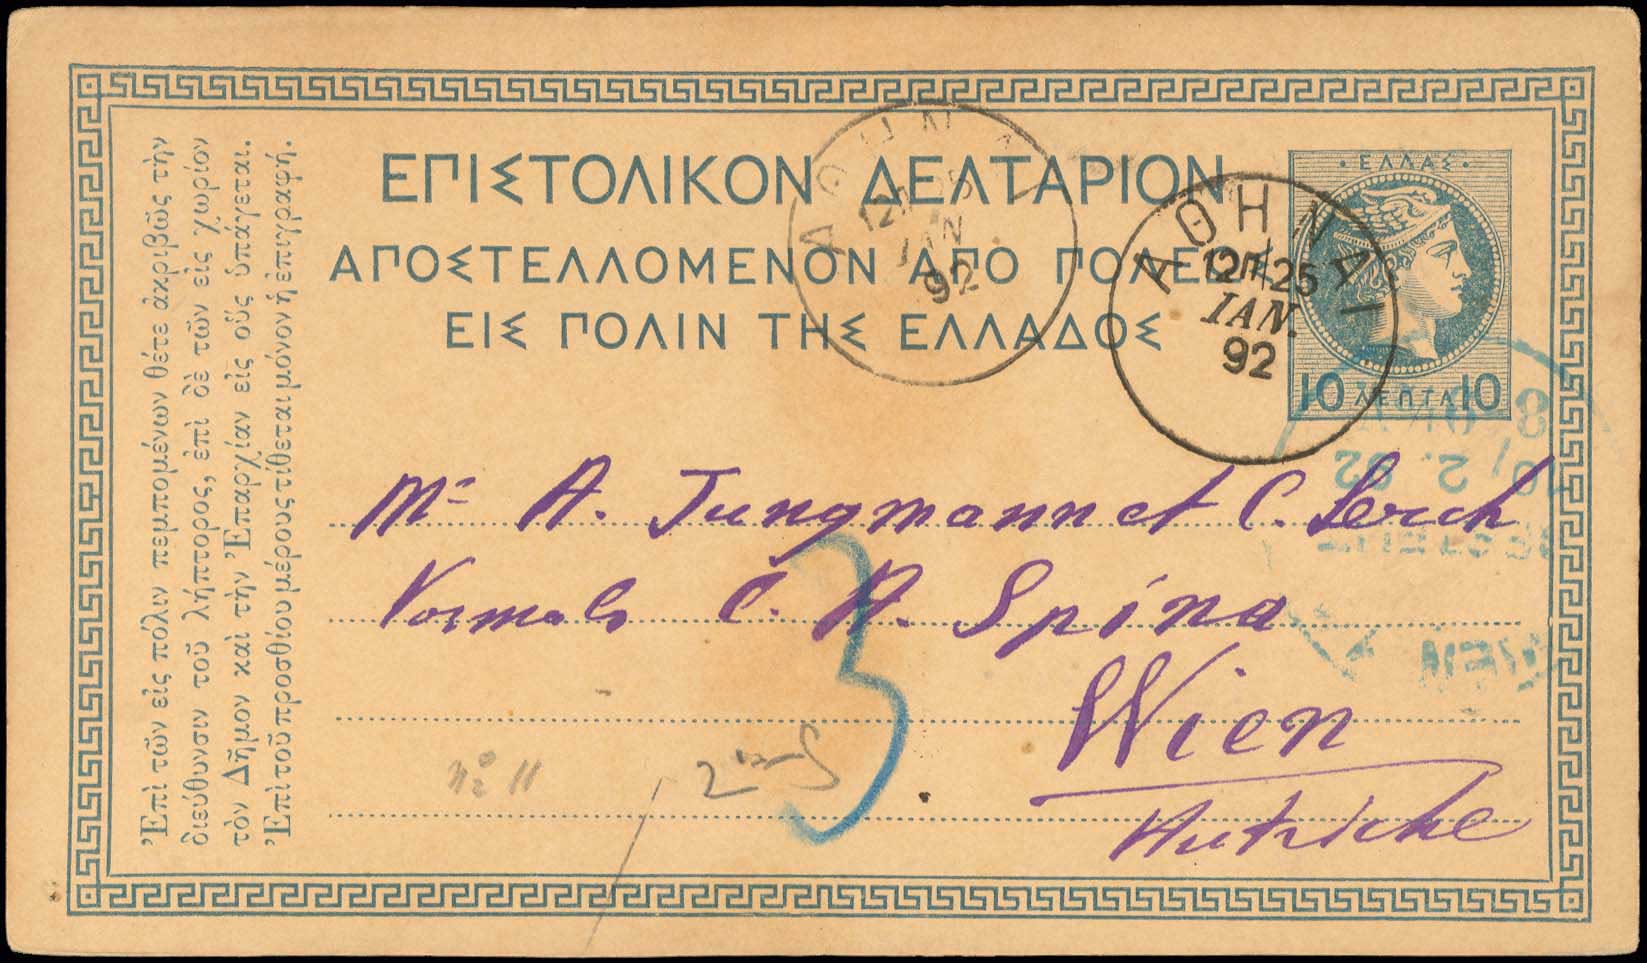 ΕΠΙΣΤΟΛΙΚΟΝ ΔΕΛΤΑΡΙΟΝ
ΑΠΟΣΤΕΛΛΟΜΕΝΟΝ ΑΠΟ ΠΟΛΕΩΣ
ΕΙΣ ΠΟΛΙΝ ΤΗΣ ΕΛΛΑΔΟΣ
·ΕΛΛΑΣ·
10 ΛΕΠΤΑ 10
ΑΘΗΝΑΙ
12Π 25
ΙΑΝ.
92
ΑΘΗΝΑΙ
12Π 25
ΙΑΝ
92
Ἐπὶ τῶν εἰς πόλιν πεμπομένων θέτε ἀκριβῶς τὴν
διεύθυνσιν τοῦ λήπτορος, ἐπὶ δὲ τῶν εἰς χωρίον
τὸν Δῆμον καὶ τὴν Ἐπαρχίαν εἰς οὓς ὑπάγεται.
Ἐπὶ τοῦ προσθίου μέρους τίθεται μόνον ἡ ἐπιγραφή.
Mr A. Jungmann et C. Lerch
Vormals C. A. Spina
Wien
Autriche
3
No 11